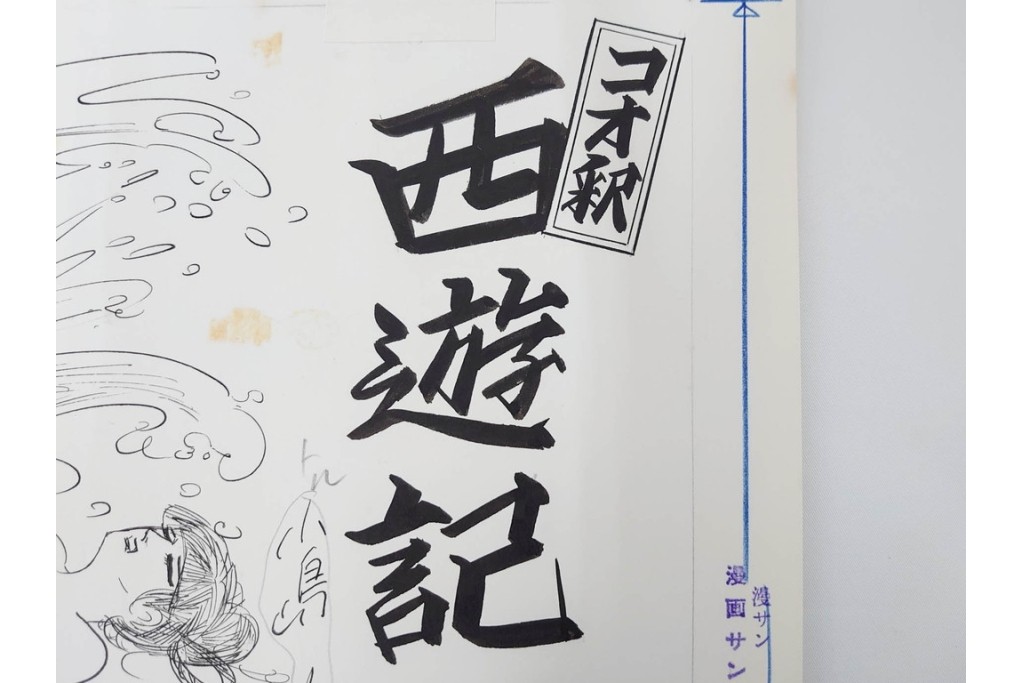 コオ釈
西遊記
小島
トル
漫サン
漫画サン